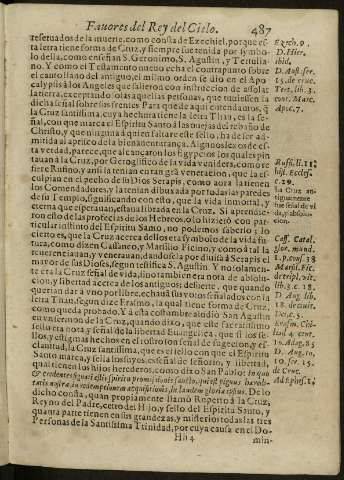 Fauores del Rey del Cielo. 487
reseruados de la muerte. como consta de Ezechiel, por que es-
ta letra tiene forma de Cruz, y siempre fue tenida por symbo-
lo della, como enseñan S. Geronimo, S. Agustin, y Tertulia-
no. Y como el Testamento nueuo echa el contrapunto sobre
el canto llano del antiguo, el mismo orden se dio en el Apo-
calypsi a los Angeles que salieron con instruccion de assolar
la tierra, exceptando solas aquellas personas, que tuuiessen la
dicha señal sobre sus frentes Para que de aqui entendamos, q̃
la Cruz santissima, cuya hechura tiene la letra Thau, es la se-
ñal, con que marca el Espiritu Santo a las ouejas del rebaño de
Christo, y que ninguna à quien faltare este sello, ha de ser ad-
mitida al aprisco de la bienauenturança. Algunos lexos de es-
ta verdad, parece, que alcançaron los Egypcios los quales pin
tauan à la Cruz, por Geroglifico de la vida venidera, como re
fiere Rufino, y assi la tenian en tan gră veneracion, que la es-
culpian en el pecho de su Dios Serapis, como aora la tienen
los Comendadores, y la tenian dibuxada por todas las paredes
de su Templo, significando con esto, que la vida inmortal, y
eterna que esperauan, estaua librada en la Cruz. Si aprendie-
ron esto de las profecias de los Hebreos, o lo hizieron con par-
ticular instinto del Espiritu Santo, no podemos saberlo; lo
cierto es, que la Cruz acerca dellos era symbolo de la vida fu-
tura, como dizen Cassaneo, y Marsilio Ficino, y como à tal la
reuerenciauan, y venerauan, dandosela por diuisa à Serapis el
mayor de sus Dioses, segun testifica S. Agustin. Y no solamen-
te era la Cruz señal de vida, sino tambien era nota de absolu-
cion, y libertad acerca de los antiguos; de suerte, que quando
querian dar a vno por libre, echauā sus votos señalados con la
letra Thau, segun dize Erasmo, la qual tiene forma de Cruz,
como queda probado. Y à esta costumbre aludio San Agustin
en vn sermon de la Cruz, quando dixo, que este sacratissimo
sello era nota y señal de la libertad Euangelica, que si los se-
llos, y estigmas hechos en el rostro son señal de sugecion, y es-
clauitud, la Cruz santissima, que es el sello con que el Espiritu
Santo marca, y sella los suyos. es señal de señorio, y libertad, à
qual tienen los hijos herederos, como dixo San Pablo: in quo
& credentes signati estis spiritu promissionis sancto, qui est pignus haredi-
tatis nostra in redemptionem acquisitionis, in laudem gloria ipsius. De lo
dicho consta, quan propiamente llamò Ruperto à la Cruz,
Reyno del Padre, cetro del Hijo, y sello del Espiritu Santo, y
quanta parte tienen en sus grandezas, y misterios todas las tres
Personas de la Santissima Trinidad; por cuya causa en el Do-
Hh 4 min-
Ezech. 9.
D. Hier.
ibid.
D. Aust. ser.
15. de cruce
Tert. lib. 3.
cont. Marc.
Apoc. 7.
Rufi. li. 11
hist. Eccles.
c. 29.
La Cruz an-
tiguamente
fue señal de vi
da, y absolu-
cion.
Cass. Catal.
glor. mund.
1. p. cons. 38
Marsil. Fic.
de tripl. vit.
lib. 3. c. 18.
D. Aug. lib.
18. de ciuit.
Dei c. 5.
Eras. m. Chi-
liad. 4. cent.
10. Adag. 85
D. Aug. to.
10. ser. 15.
de Cruce.
Ad Ephes. 1.